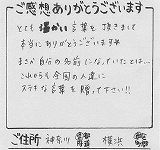 ご感想ありがとうございます
とても温かい言葉を頂きまして
本当にありがとうございます
まさか自分の名前になっていたとは…
これからも全国の人達に
ステキな言葉を贈って下さい!!
ご住所 神奈川 横浜